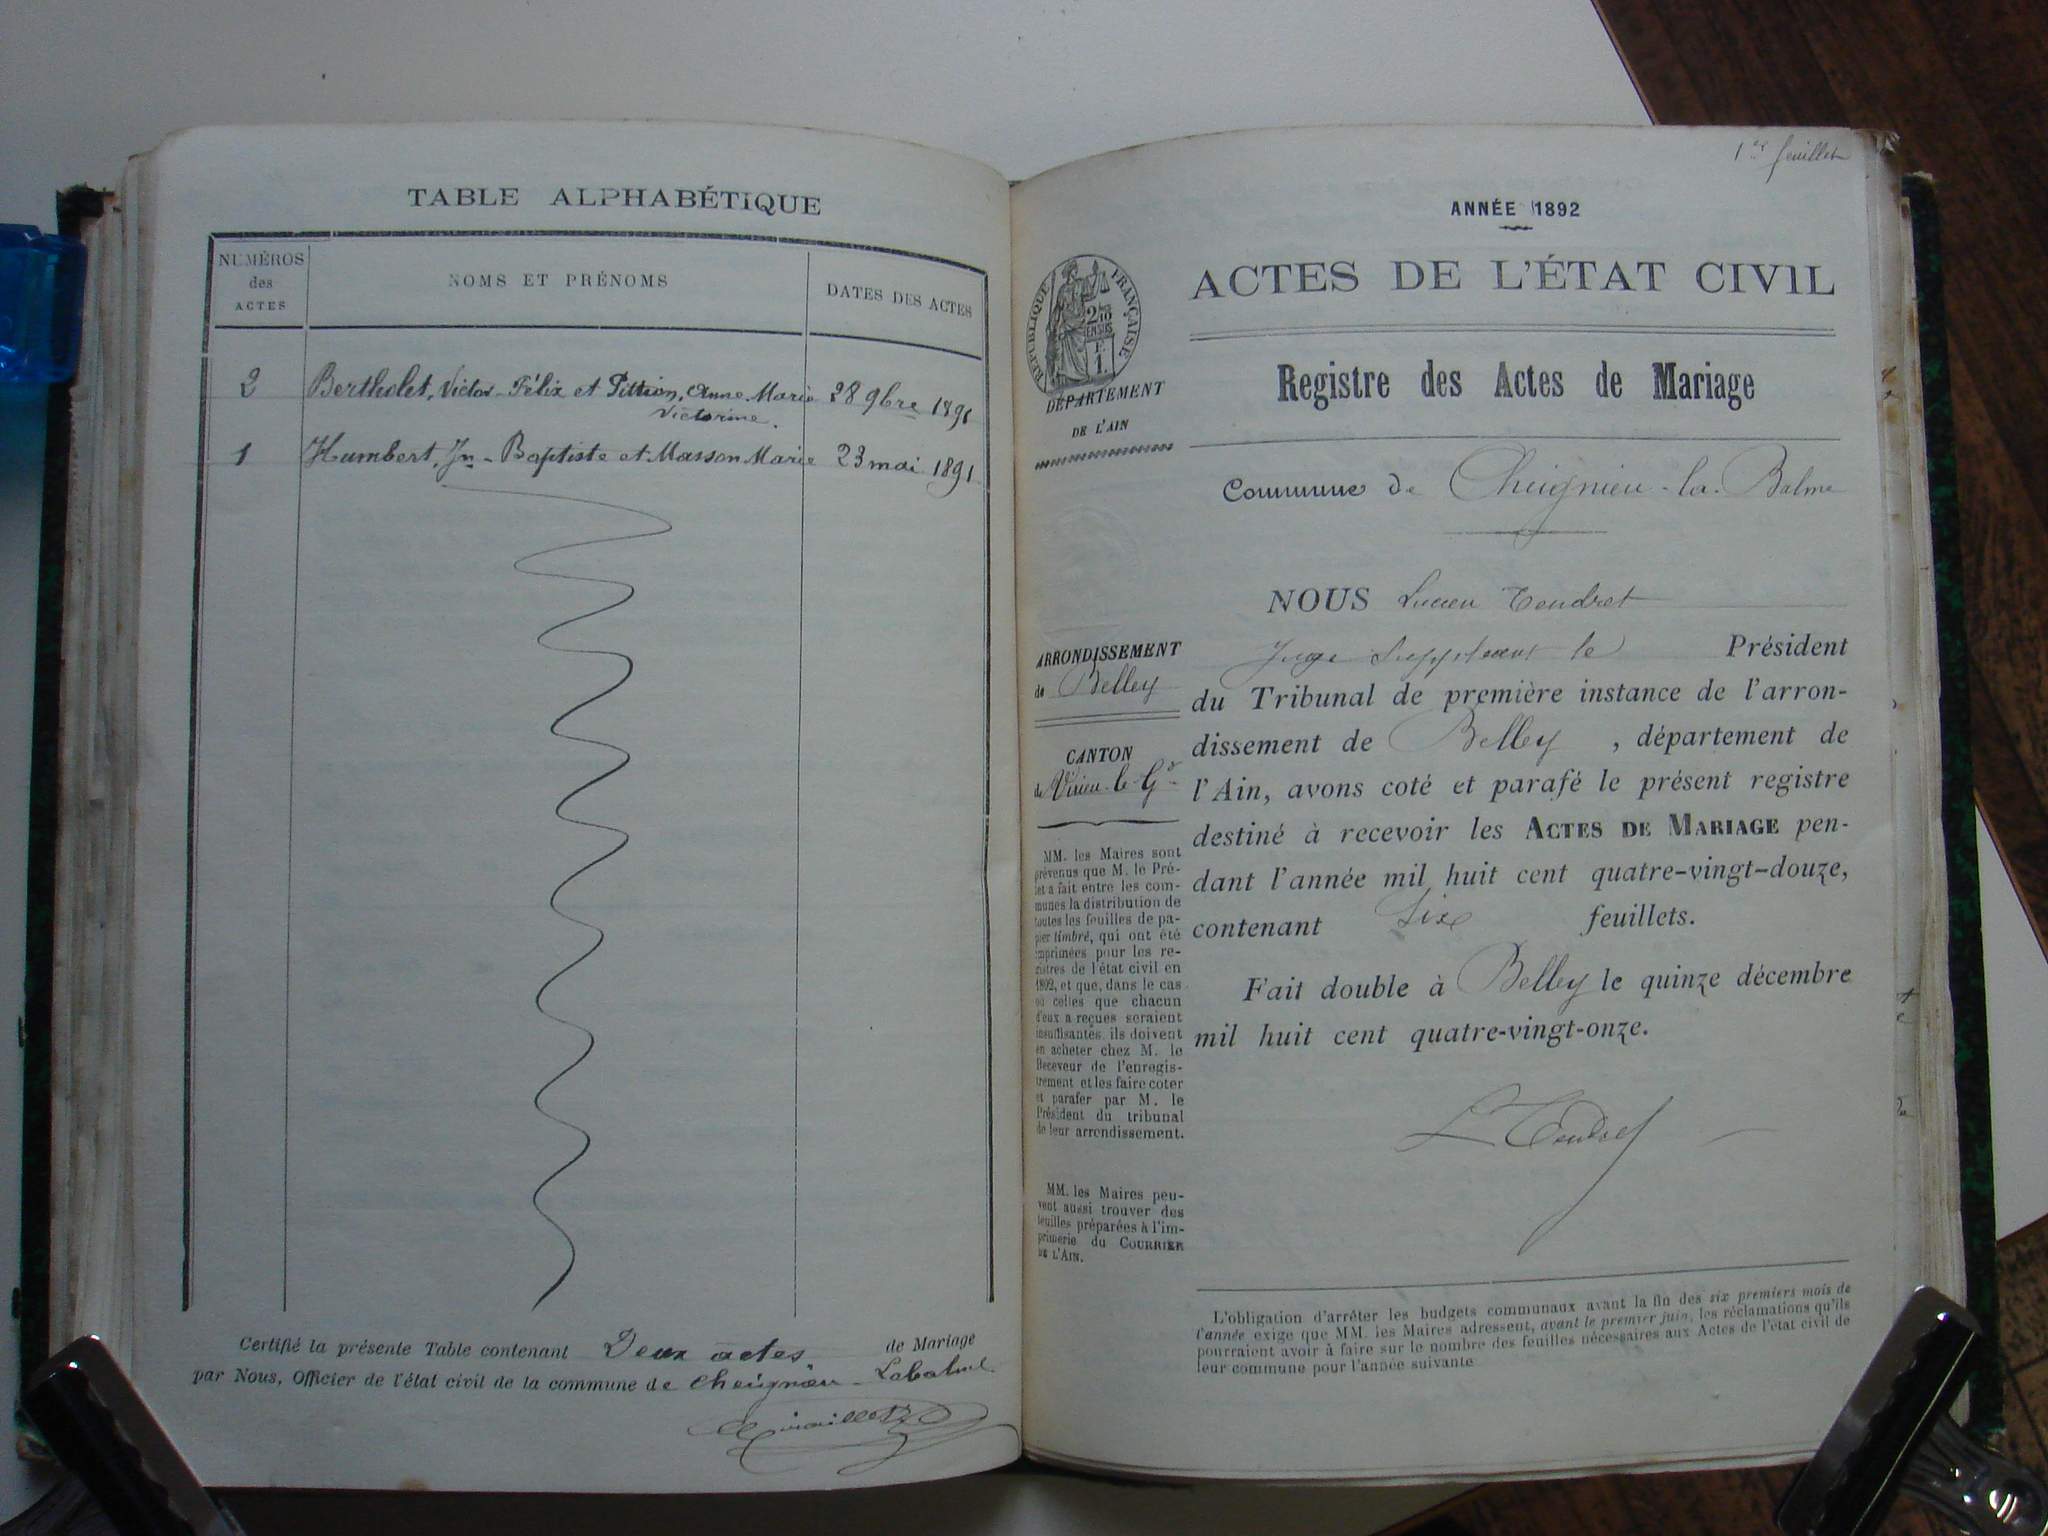 TABLE ALPHABÉTIQUE
NUMÉROS
des
ACTES
NOMS ET PRÉNOMS
DATES DES ACTES
2 Bertholet, Victor-Félix et Pittion, Anne Marie 28 9bre 1891
Victorine.
1 Humbert, Jn-Baptiste et Masson Marie 23 mai 1891
Certifié la présente Table contenant Deux actes de Mariage
par Nous, Officier de l'état civil de la commune de Cheignieu-Labalme
1er feuillet
ANNÉE 1892
RÉPUBLIQUE FRANÇAISE
ACTES DE L'ÉTAT CIVIL
Registre des Actes de Mariage
DÉPARTEMENT
DE L'AIN
Commune de Cheignieu-la-Balme
NOUS Lucien Tendret
Juge Suppléant le Président
ARRONDISSEMENT
de Belley
du Tribunal de première instance de l'arron-
dissement de Belley, département de
l'Ain, avons coté et parafé le présent registre
destiné à recevoir les ACTES DE MARIAGE pen-
dant l'année mil huit cent quatre-vingt-douze,
contenant Six feuillets.
Fait double à Belley le quinze décembre
mil huit cent quatre-vingt-onze.
L Tendret
CANTON
de Virieu-le-Gd
MM. les Maires sont
prévenus que M. le Pré-
fet a fait entre les com-
munes la distribution de
toutes les feuilles de pa-
pier timbré, qui ont été
imprimées pour les re-
gistres de l'état civil en
1892, et que, dans le cas
où celles que chacun
d'eux a reçues seraient
insuffisantes, ils doivent
en acheter chez M. le
Receveur de l'enregis-
trement et les faire coter
et parafer par M. le
Président du tribunal
de leur arrondissement.
MM. les Maires peu-
vent aussi trouver des
feuilles préparées à l'im-
primerie du COURRIER
DE L'AIN.
L'obligation d'arrêter les budgets communaux avant la fin des six premiers mois de
l'année exige que MM. les Maires adressent, avant le premier juin, les réclamations qu'ils
pourraient avoir à faire sur le nombre des feuilles nécessaires aux Actes de l'état civil de
leur commune pour l'année suivante